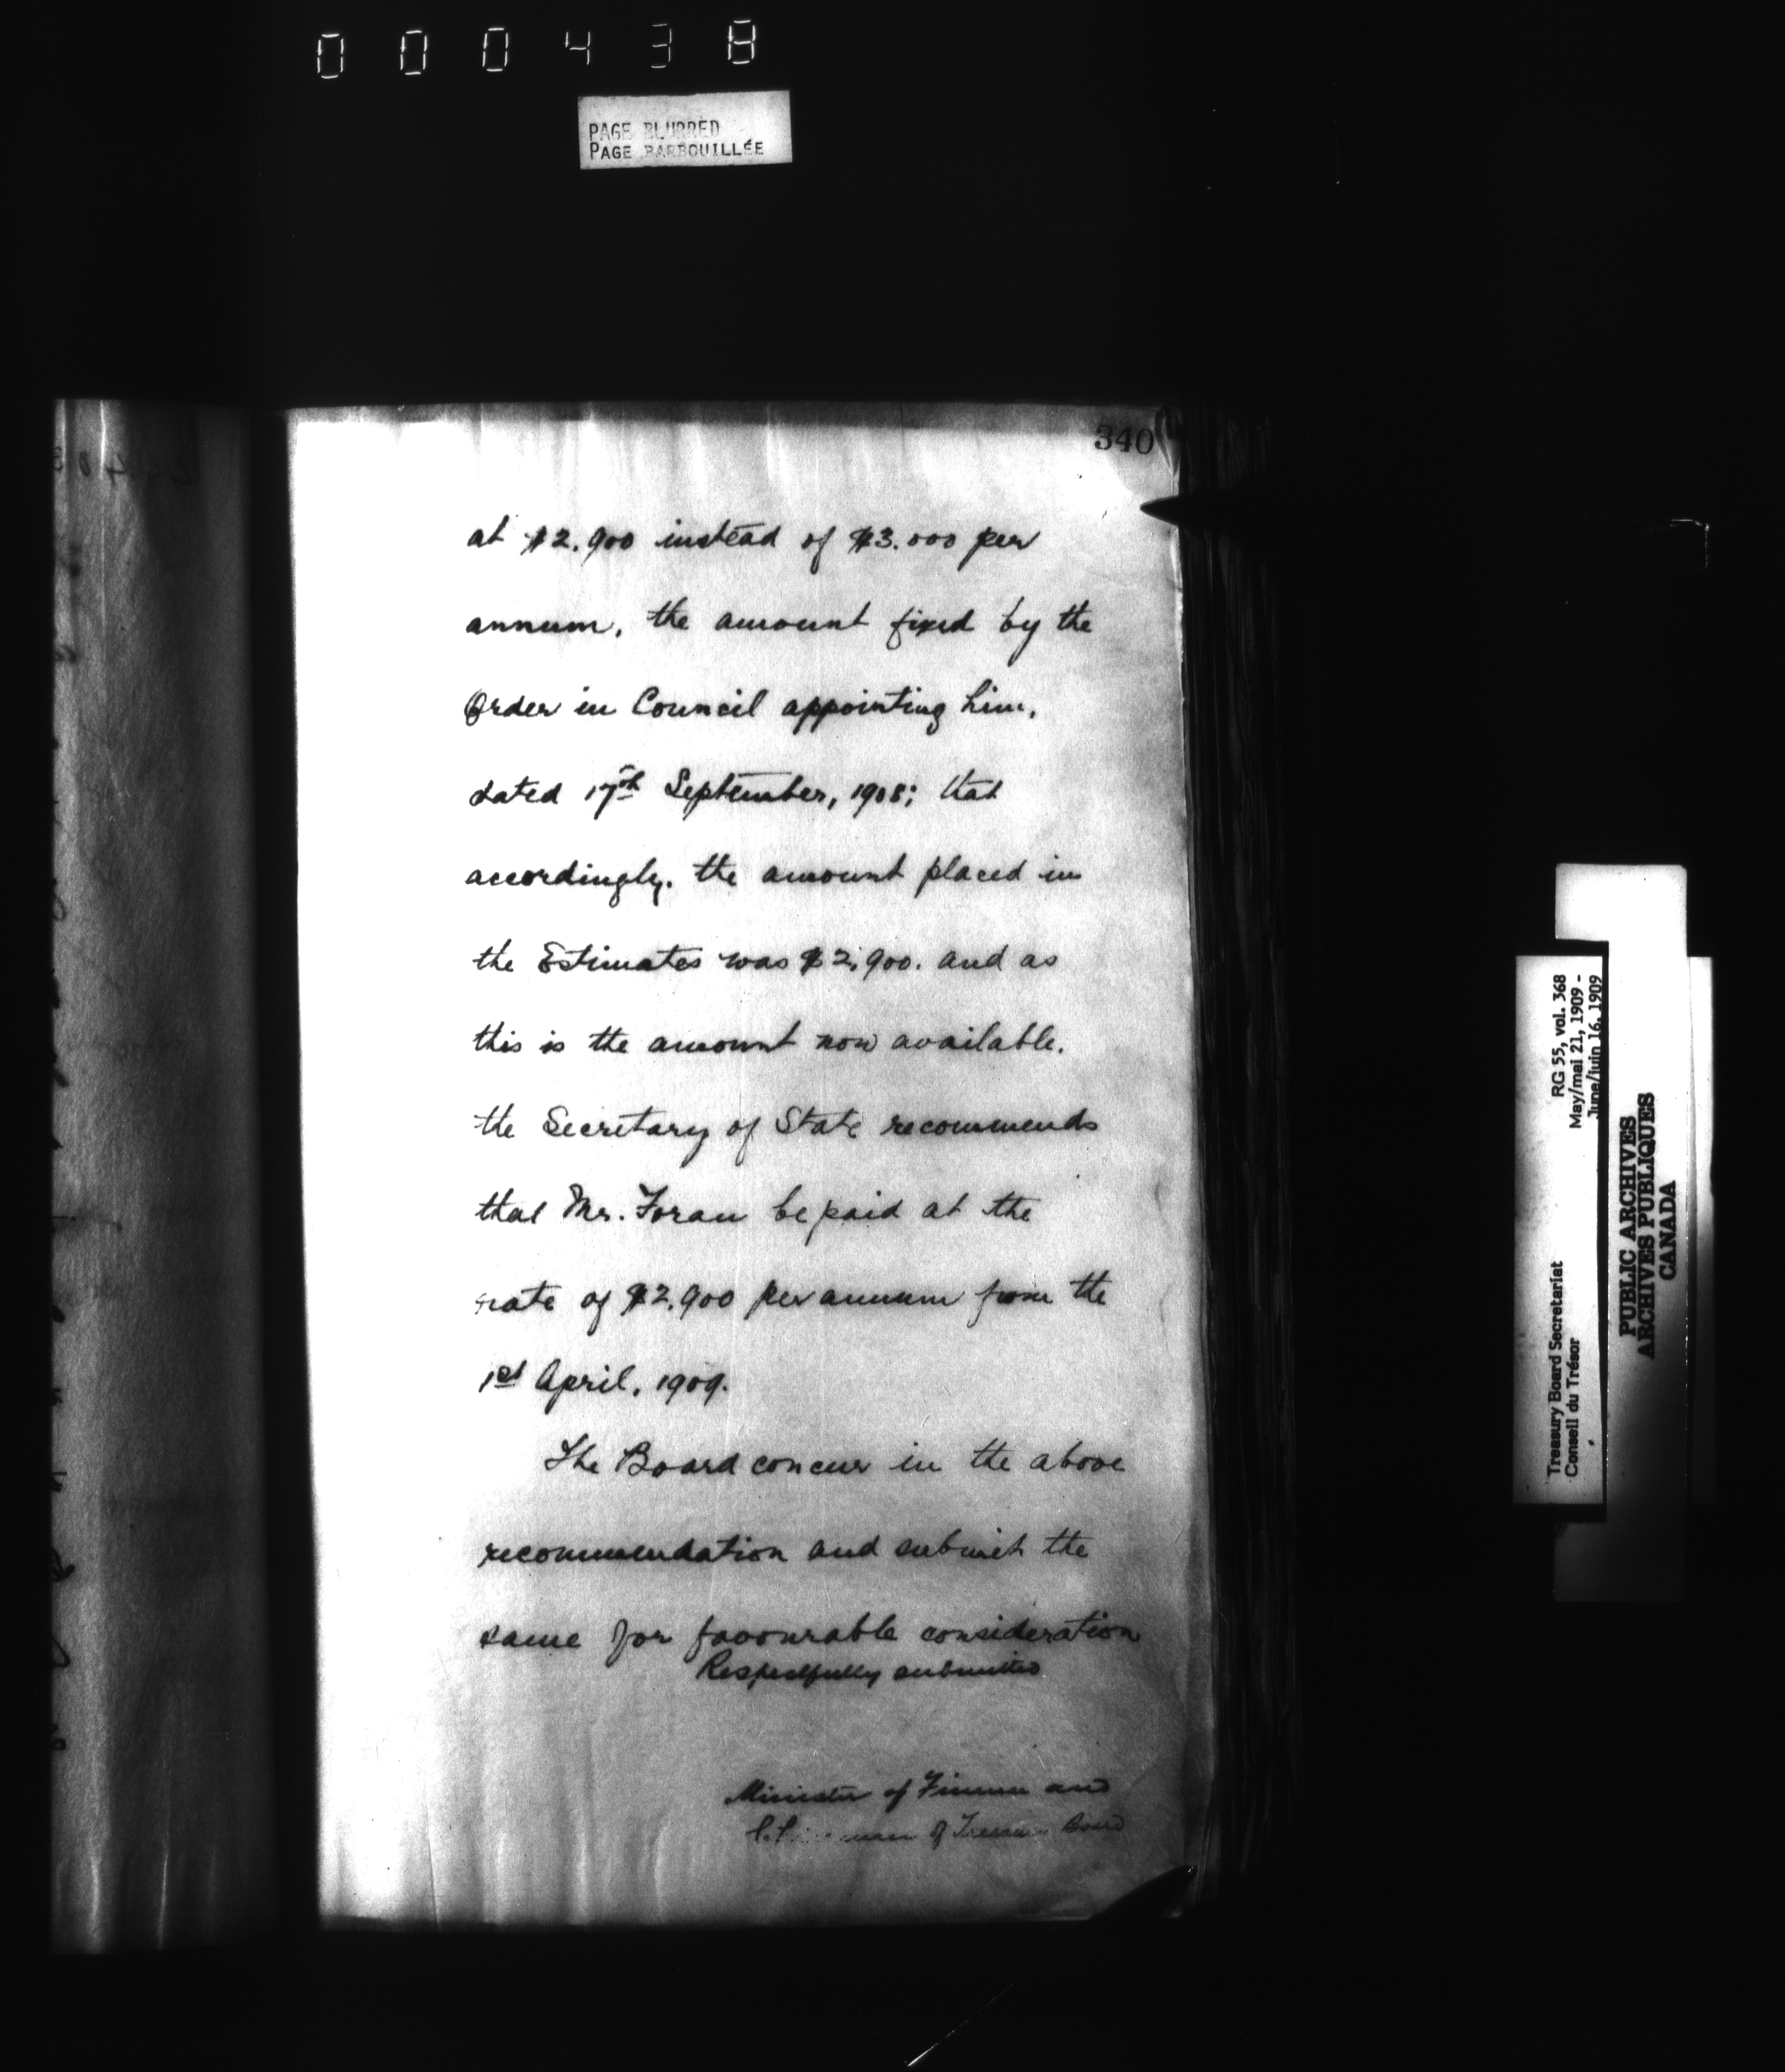 000438
PAGE BLURRED
PAGE BARBOUILLÉE
340
at $2.900 instead of $3.000 per
annum, the amount fixed by the
Order in Council appointing him,
dated 17th September, 1908; that
accordingly, the amount placed in
the Estimates was $2,900. and as
this is the amount now available,
the Secretary of State recommends
that Mr. Foran be paid at the
rate of $2,900 per annum from the
1st April, 1909.
The Board concur in the above
recommendation and submit the
same for favourable consideration
Respectfully submitted
Minister of Finance and
of Treasury Board
RG 55, vol. 368
May/mai 21, 1909 -
June/juin 16, 1909
Treasury Board Secretariat
Conseil du Trésor
PUBLIC ARCHIVES
ARCHIVES PUBLIQUES
CANADA